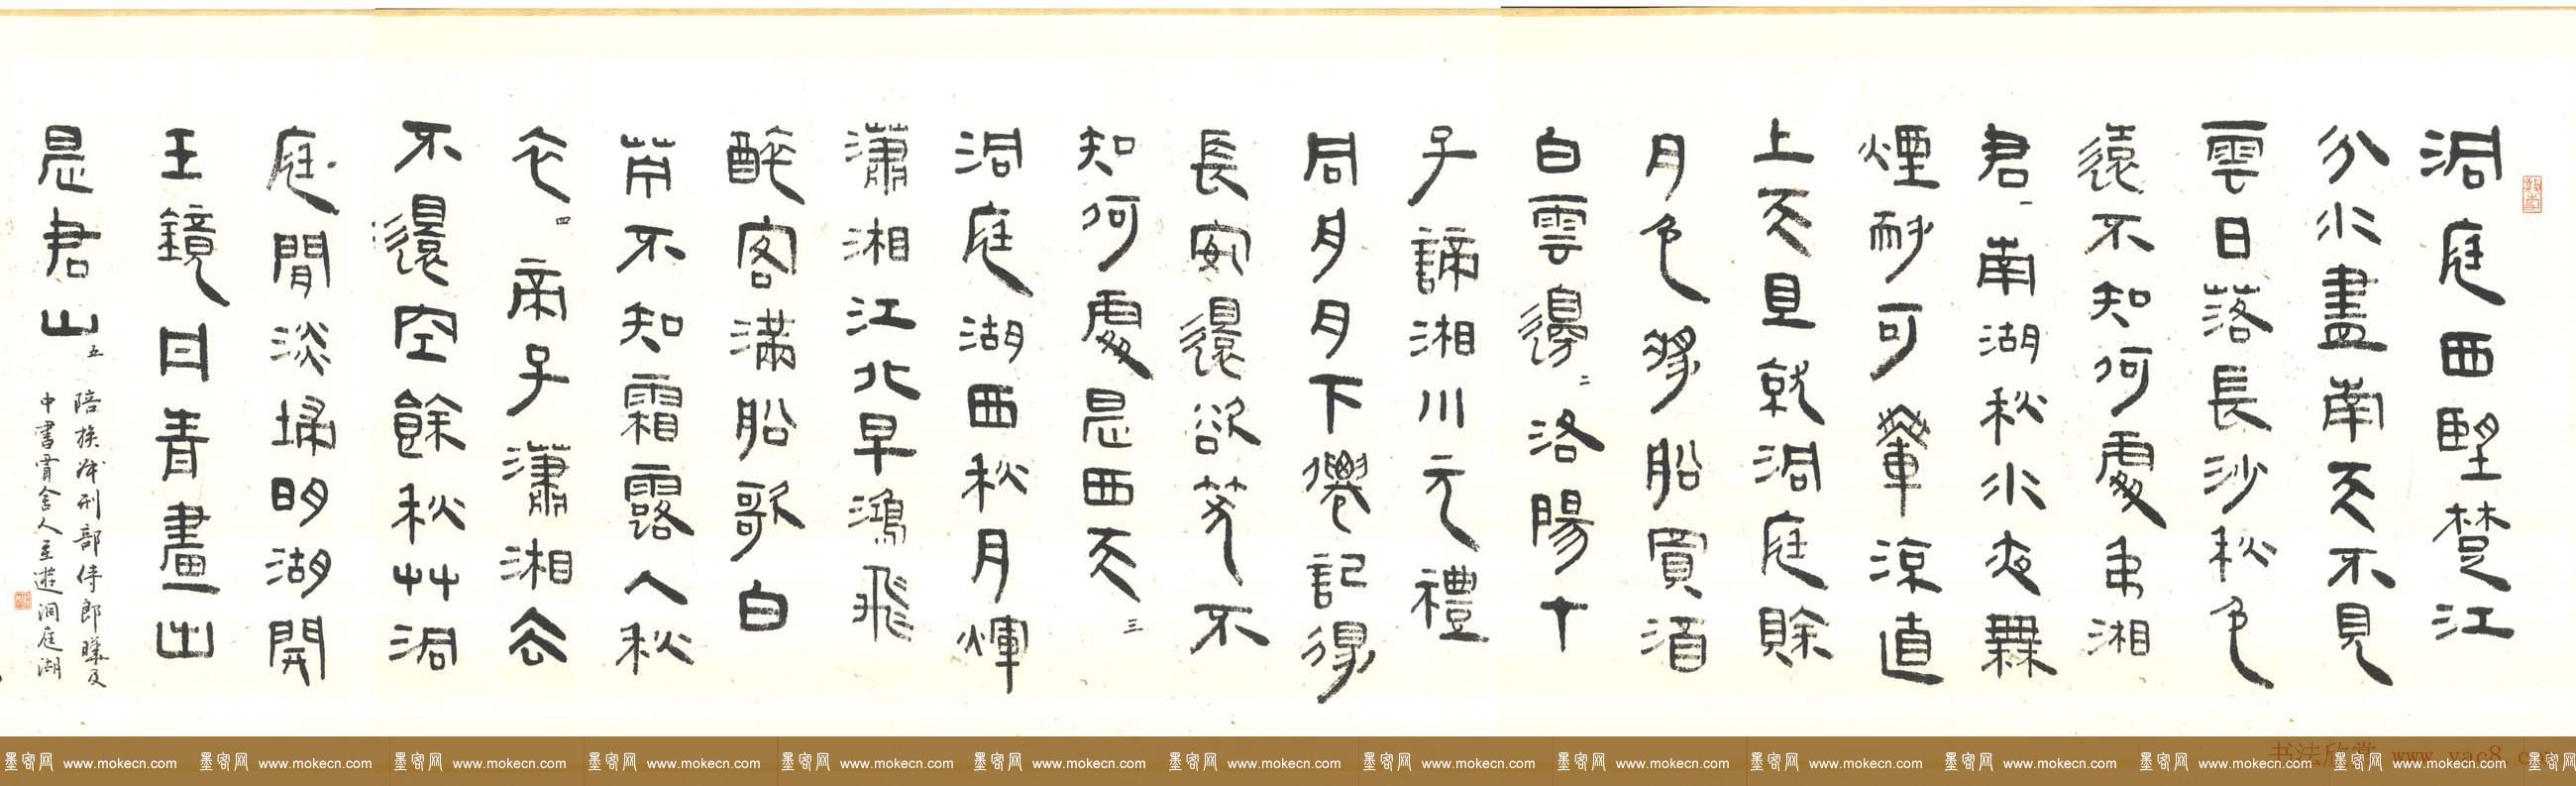 洞庭西望楚江
分水盡南天不見
雲日落長沙秋色
遠不知何處弔湘
君一南湖秋水夜無
煙耐可乘流直
上天且就洞庭賖
月色將船買酒
白雲邊二洛陽才
子謫湘川元禮
同舟月下僊記得
長安還欲笑不
知何處是西天三
洞庭湖西秋月輝
瀟湘江北早鴻飛
醉客滿船歌白
苧不知霜露入秋
衣四帝子瀟湘去
不還空餘秋艸洞
庭閒淡掃明湖開
玉鏡丹青畫出
是君山五
陪族叔刑部侍郎曄及
中書賈舍人至遊洞庭湖
书法欣赏 www.yac8.com
墨客网 www.mokecn.com 墨客网 www.mokecn.com 墨客网 www.mokecn.com 墨客网 www.mokecn.com 墨客网 www.mokecn.com 墨客网 www.mokecn.com 墨客网 www.mokecn.com 墨客网 www.mokecn.com 墨客网 www.mokecn.com 墨客网 www.mokecn.com 墨客网 www.mokecn.com 墨客网 www.mokecn.com 墨客网 www.mokecn.com